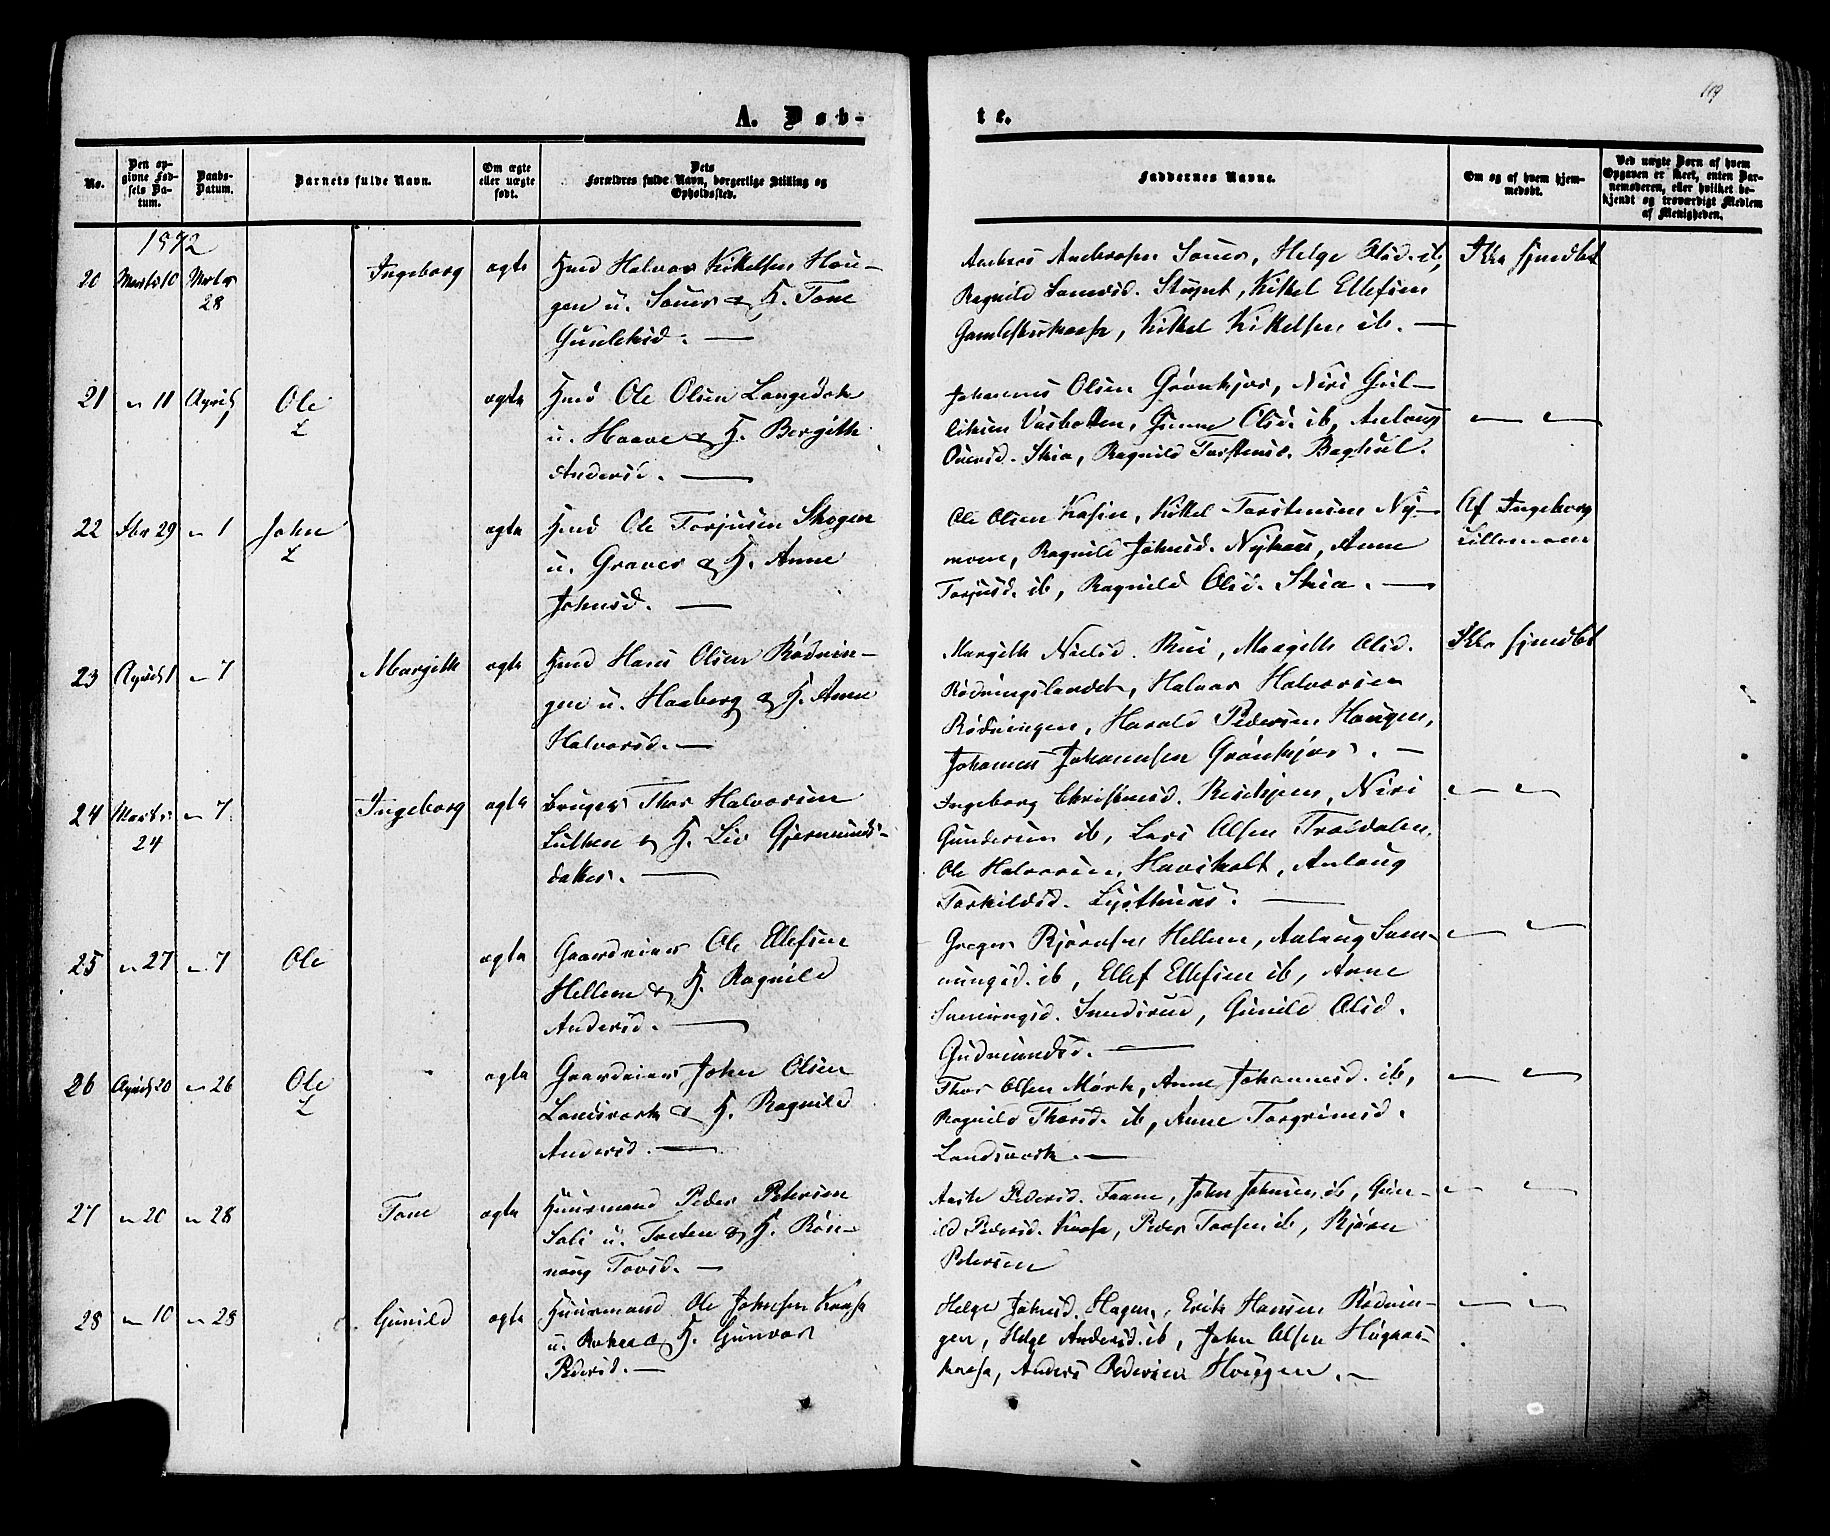 119
A. Døb-
te.
No.
Den op-
givne Fød-
sels Da-
tum.
Daabs-
Datum.
Barnets fulde Navn.
Om ægte
eller uægte
født.
Dets
Forældres fulde Navn, borgerlige Stilling og
Opholdssted.
Faddernes Navne.
Om og af hvem hjem-
medøbt.
Ved uægte Børn af hvem
Opgaven er skeet, enten Bar-
nemoderen, eller hvilket be-
kjendt og troværdigt Medlem
af Menigheden.
1872
20 Marts 10 Marts 28 Ingeborg ægte
Hmd Halvor Kittelsen Hou-
gen u. Souer & H. Tone
Gunleiksd. —
Anders Andersen Souer, Helge Olsd. ib,
Ragnild Stupet, Kittel Ellefsen
Kittel Kittelsen ib. —
Ikke hjemdbt
21 " 11 April Ole ægte
Hmd Ole Olsen
u. Haave & H. Bergith
Andersd. —
Johannes Olsen Grønkjær, Niri
Olsd. ib, Anlaug
Skia, Ragnild Torstensd.
" "
22 29 " 1 John ægte
Hmd Ole Torjusen Skogen
u. Graver & H. Anne
Johnsd. —
Ole Olsen Kittel Torstensen Ny-
moen, Ragnild Johnsd. Nyhuus, Anne
Torjusd. ib, Ragnild Olsd. Skia. —
Af Ingeborg
Lillemoen
23 April 1 " 7 Margith ægte
Hmd Hans Olsen Rødnin-
gen u. Haaberg & H. Anne
Halvorsd. —
Margith Nielsd. Rui, Margith Olsd.
Rødningslandet, Halvor Halvorsen
Rødningen, Harald Pedersen Hougen,
Johannes Johannsen Grønkjær. —
Ikke hjemdbt
24 Marts 24 " 7 Ingeborg ægte
Bruger Thor Halvorsen
& H. Liv Gjermunds-
datter. —
Ingeborg Christensd. Niri
Gundersen ib, Lars Olsen Trældalen,
Ole Halvorsen, Haviholt, Anlaug
Torkildsd. Lysthuus. —
" "
25 " 27 " 7 Ole ægte
Gaardeier Ole Ellefsen
Hellem & H. Ragnild
Andersd. —
Greger Bjørnsen Hellem, Anlaug Sven-
nungsd. ib, Ellef Ellefsen ib, Anne
Svennungsd. Gunild Olsd.
Gudmundsd. —
" "
26 April 20 " 26 Ole ægte
Gaardeier John Olsen
Landsverk & H. Ragnild
Andersd. —
Thor Olsen Mørk, Anne Johannesd. ib,
Ragnild Thorsd. ib, Anne Torgrimsd.
Landsverk. —
" "
27 " 20 " 28 Tone ægte
Huusmand Peder Petersen
Soli u. Tveten & H. Røn-
naug Tovsd. —
Aaste Pedersd. Faane, John Johnsen ib, Gun-
ild Pedersd. Kaasa, Peder Tovsen ib, Bjørn
Petersen
" "
28 " 10 " 28 Gunild ægte
Huusmand Ole Johnsen Kaasa
u. & H. Gunvor
Pedersd. —
Helge Johnsd. Hagen, Erik Hansen Rødnin-
gen, Helge Andersd. ib, John Olsen
kaasa, Anders Pedersen Hougen. —
" "